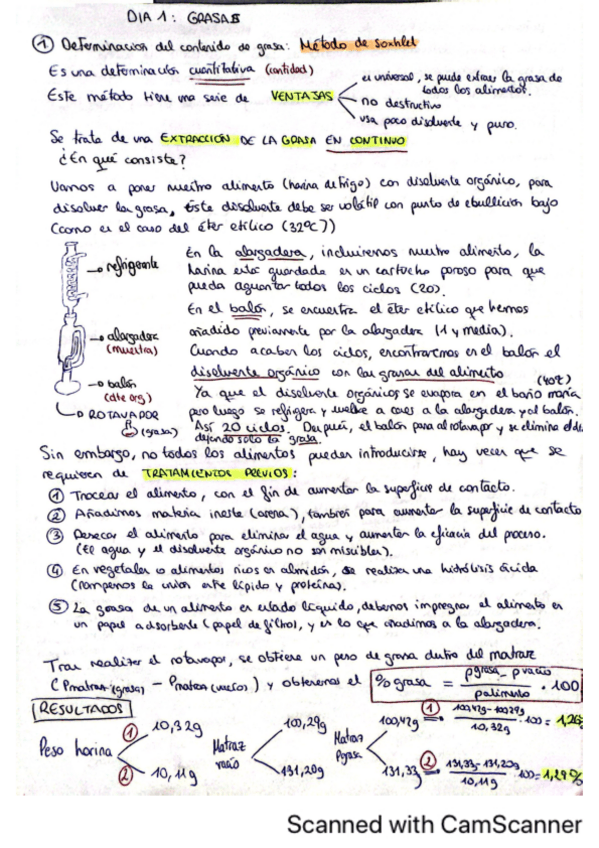 DIA 1: GRASAS
① Determinación del contenido de grasa: Método de Soxhlet
Es una determinación cuantitativa (cantidad)
Este método tiene una serie de VENTAJAS
es universal, se puede extraer la grasa de todos los alimentos.
no destructivo
usa poco disolvente y puro.
Se trata de una EXTRACCIÓN DE LA GRASA EN CONTINUO
¿En qué consiste?
Vamos a poner nuestro alimento (harina de trigo) con disolvente orgánico, para
disolver la grasa. Este disolvente debe ser volátil con punto de ebullición bajo
(como es el caso del éter etílico (32ºC))
refrigerante
alargadera
(muestra)
balón
(dte org)
ROTAVAPOR
(grasa)
En la alargadera, incluiremos nuestro alimento, la
harina está guardada en un cartucho poroso para que
pueda aguantar todos los ciclos (20).
En el balón, se encuentra el éter etílico que hemos
añadido previamente por la alargadera (1 y media).
Cuando acaben los ciclos, encontraremos en el balón el
disolvente orgánico con las grasas del alimento
(40ºC)
Ya que el disolvente orgánico se evapora en el baño maría
pero luego se refrigera y vuelve a caer a la alargadera y al balón.
Así 20 ciclos. Después, el balón pasa al rotavapor y se elimina el
dejando solo la grasa.
Sin embargo, no todos los alimentos pueden introducirse, hay veces que se
requieren de TRATAMIENTOS PREVIOS:
① Trocear el alimento, con el fin de aumentar la superficie de contacto.
② Añadimos materia inerte (arena), también para aumentar la superficie de contacto
③ Desecar el alimento para eliminar el agua y aumentar la eficacia del proceso.
(El agua y el disolvente orgánico no son miscibles).
④ En vegetales o alimentos ricos en almidón, se realiza una hidrólisis ácida
(rompemos la unión entre lípido y proteína).
⑤ La grasa de un alimento en estado líquido, debemos impregnar el alimento en
un papel adsorbente (papel de filtro), y es lo que añadimos a la alargadera.
Tras realizar el rotavapor, se obtiene un peso de grasa dentro del matraz
(Pmatraz(grasa) - Pmatraz(vacío)) y obtenemos el %grasa = pgrasa - pvacío / palimento · 100
RESULTADOS
Peso harina
① 10,32g
② 10,11g
Matraz vacío
100,29g
131,20g
Matraz Pgrasa
100,42g
131,33
① 100,42g - 100,29g / 10,32g · 100 = 1,26
② 131,33 - 131,20g / 10,11g · 100 = 1,29%
Scanned with CamScanner